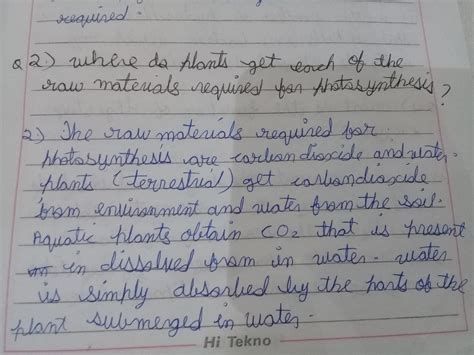 required.
Q 2.) where do plants get each of the
raw materials required for photosynthesis?
2.) The raw materials required for
photosynthesis are carbondioxide and water.
plants (terrestrial) get carbondioxide
from environment and water from the soil.
Aquatic plants obtain CO2 that is present
in dissolved from in water. water
is simply absorbed by the parts of the
plant submerged in water.
Hi Tekno